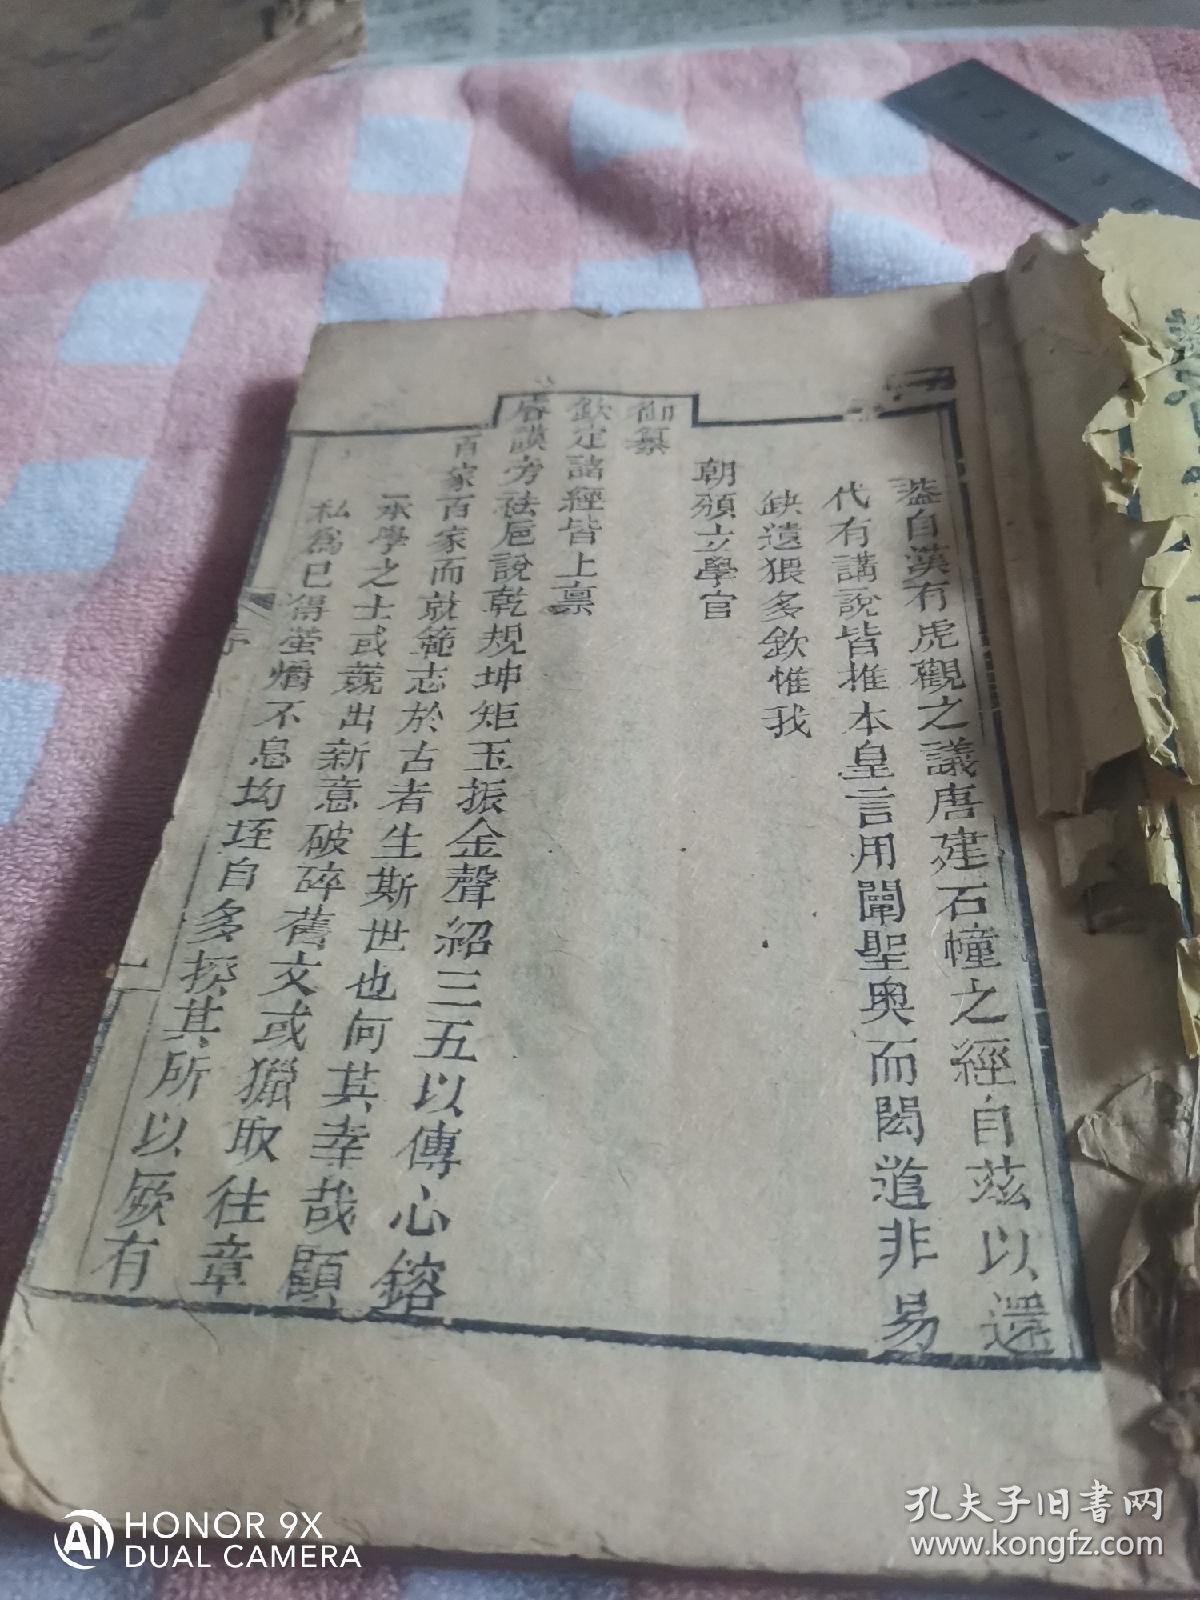 蓋自漢有虎觀之議唐建石幢之經自茲以還
代有講說皆推本皇言用闡聖奧而閎道非易
缺遺猥多欽惟我
朝頒立學官
御纂
欽定諸經皆上禀
睿謨旁祛巵說乾規坤矩玉振金聲紹三五以傳心鎔
百家百家而就範志於古者生斯世也何其幸哉顧
承學之士或競出新意破碎舊文或獵取往章
私爲已得螢爝不息坳垤自多揆其所以厥有
序
一
1 2 3 4 5 6
HONOR 9X
DUAL CAMERA
AI
孔夫子旧书网
www.kongfz.com